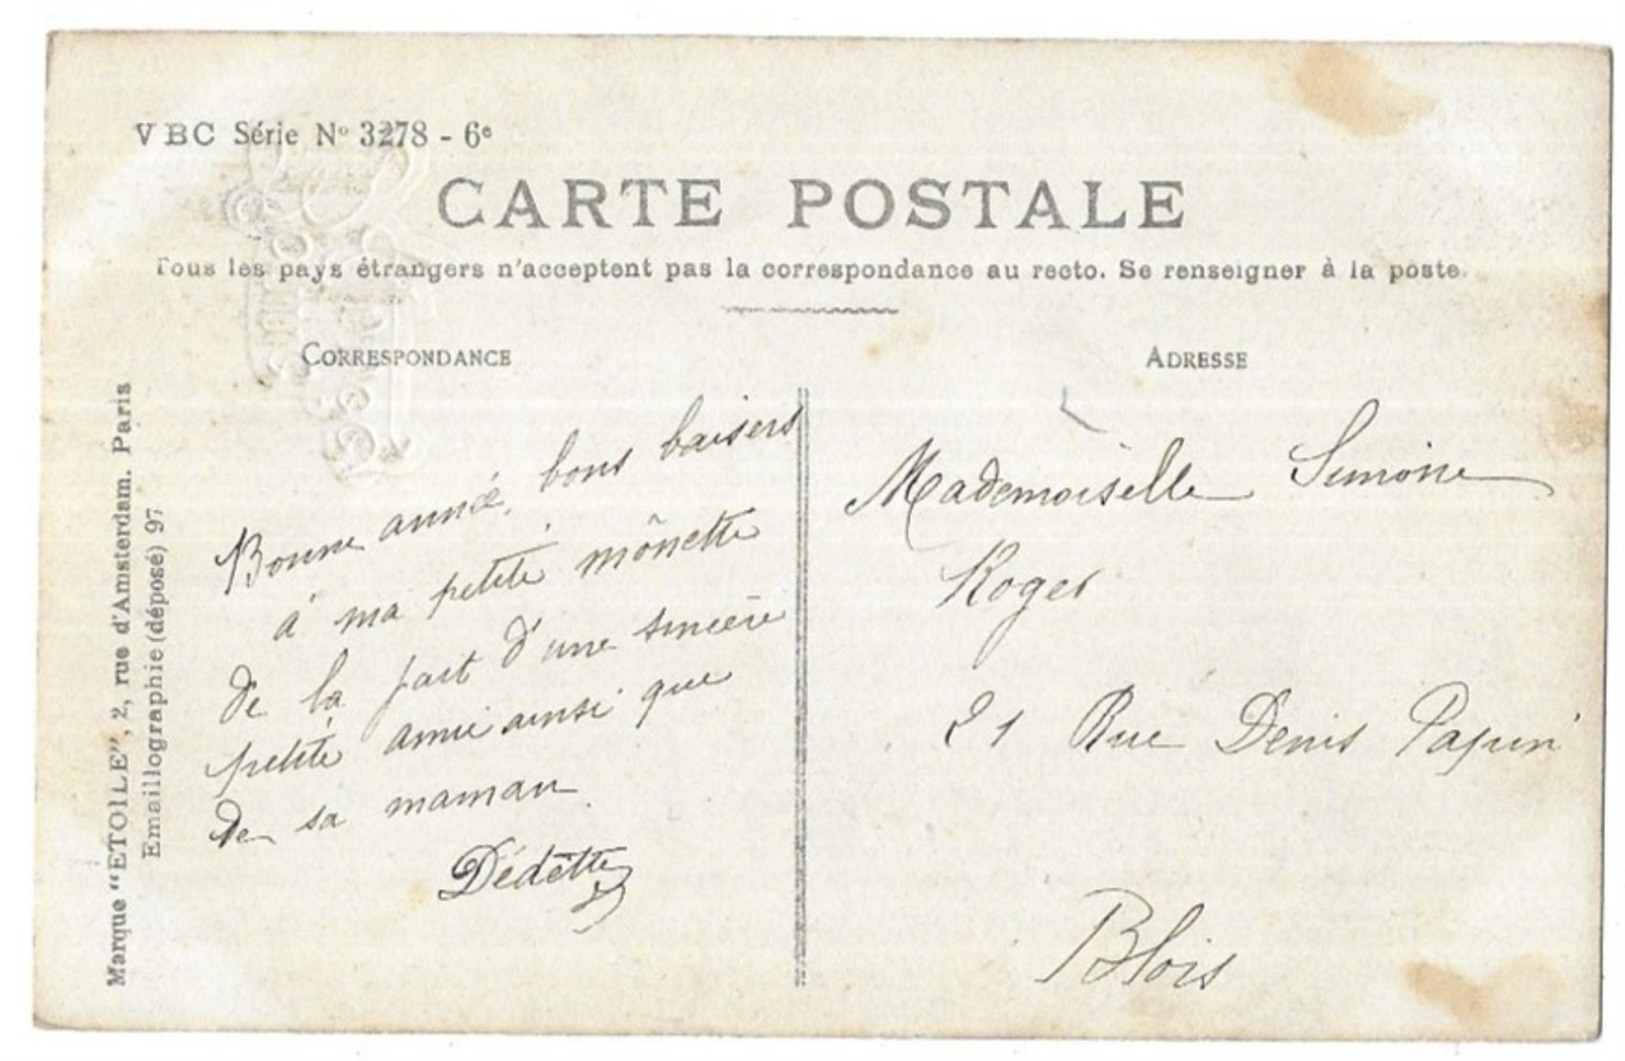 VBC Série Nº 3278 - 6e
CARTE POSTALE
Tous les pays étrangers n'acceptent pas la correspondance au recto. Se renseigner à la poste.
CORRESPONDANCE
Bonne année, bons baisers
à ma petite mônette
de la part d'une sincère
petite amie ainsi que
de sa maman
Dédette
ADRESSE
Mademoiselle Simone
Roger
21 Rue Denis Papin
Blois
Marque "ETOILE", 2, rue d'Amsterdam. Paris
Emaillographie (déposé) 97